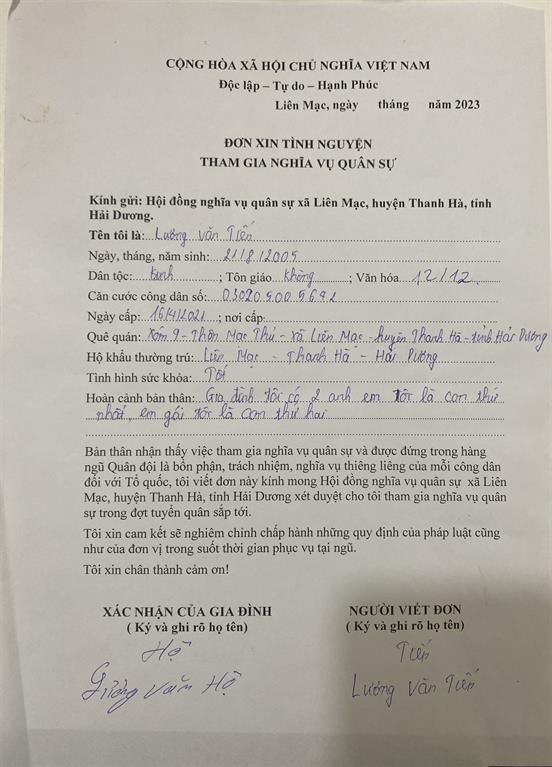 CỘNG HÒA XÃ HỘI CHỦ NGHĨA VIỆT NAM
Độc lập – Tự do – Hạnh Phúc
Liên Mạc, ngày tháng năm 2023
ĐƠN XIN TÌNH NGUYỆN
THAM GIA NGHĨA VỤ QUÂN SỰ
Kính gửi: Hội đồng nghĩa vụ quân sự xã Liên Mạc, huyện Thanh Hà, tỉnh
Hải Dương.
Tên tôi là: Lương Văn Tiến
Ngày, tháng, năm sinh: 21/8/2005
Dân tộc: kinh; Tôn giáo không; Văn hóa 12/12
Căn cước công dân số: 030205005692
Ngày cấp: 16/4/2021; nơi cấp
Quê quán: Xóm 9 - Thôn Mạc Thủ - xã Liên Mạc - huyện Thanh Hà - tỉnh Hải Dương
Hộ khẩu thường trú: Liên Mạc - Thanh Hà - Hải Dương
Tình hình sức khỏa: Tốt
Hoàn cảnh bản thân: Gia đình tôi có 2 anh em tôi là con thứ
nhất, em gái tôi là con thứ hai
Bản thân nhận thấy việc tham gia nghĩa vụ quân sự và được đứng trong hàng
ngũ Quân đội là bổn phận, trách nhiệm, nghĩa vụ thiêng liêng của mỗi công dân
đối với Tổ quốc, tôi viết đơn này kính mong Hội đồng nghĩa vụ quân sự xã Liên
Mạc, huyện Thanh Hà, tỉnh Hải Dương xét duyệt cho tôi tham gia nghĩa vụ quân
sự trong đợt tuyển quân sắp tới.
Tôi xin cam kết sẽ nghiêm chỉnh chấp hành những quy định của pháp luật cũng
như của đơn vị trong suốt thời gian phục vụ tại ngũ.
Tôi xin chân thành cảm ơn!
XÁC NHẬN CỦA GIA ĐÌNH NGƯỜI VIẾT ĐƠN
( Ký và ghi rõ họ tên) ( Ký và ghi rõ họ tên)
Hộ Tiến
Văn Hộ Lương Văn Tiến